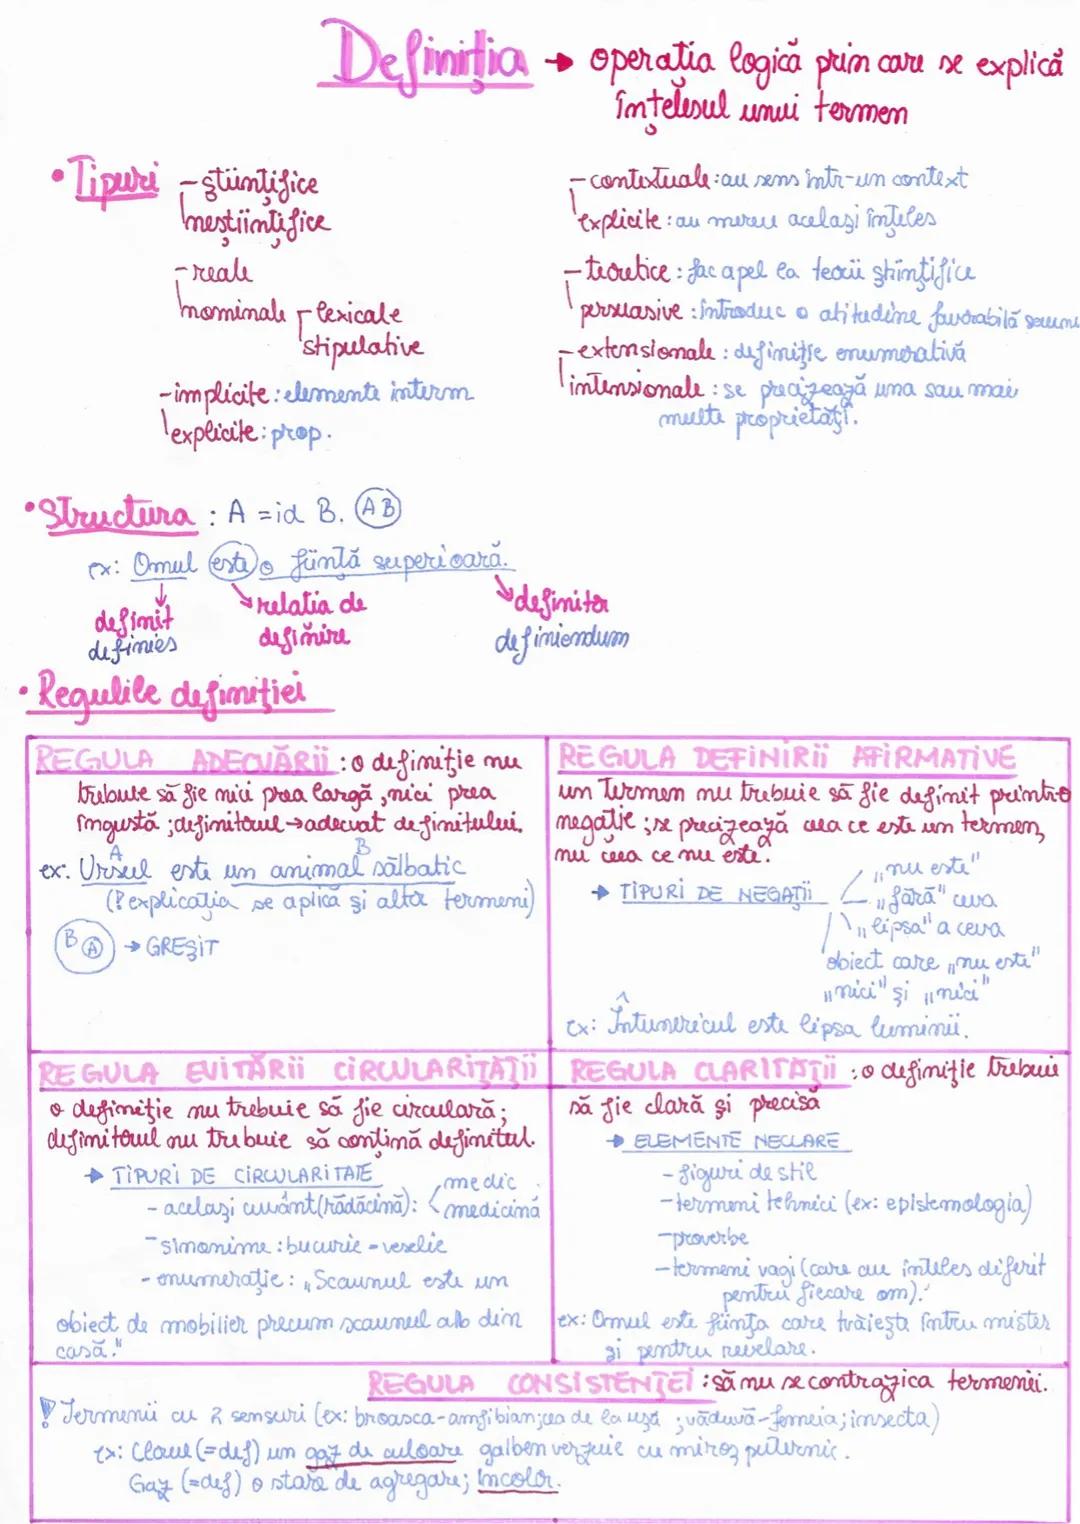 Definiția → operația logică prin care se explică
înțelesul unui termen
• Tipuri - științifice
neștiințifice
- reale
nominale - lexicale
stipulative
- implicite : elemente interm
explicite : prop.
- contextuale : au sens într-un context
explicite : au mereu același înțeles
- teoretice : fac apel la teorii științifice
persuasive : introduc o atitudine favorabilă
- extensionale : definiție enumerativă
intensionale : se precizează una sau mai
multe proprietăți.
• Structura : A = id B. (AB)
ex: Omul este o ființă superioară.
definit
definies
relatia de
definire
definitor
definiendum
• Regulile definiției
REGULA ADECVĂRII : o definiție nu
trebuie să fie nici prea largă, nici prea
îngustă ; definitorul → adecvat definitului.
A B
ex: Ursul este un animal sălbatic
(! explicația se aplică și altor termeni)
B A → GREȘIT
REGULA DEFINIRII AFIRMATIVE
un termen nu trebuie să fie definit printr-o
negație ; se precizează ceea ce este un termen,
nu ceea ce nu este.
→ TIPURI DE NEGAȚII
„nu este"
„fără" ceva
„lipsa" a ceva
obiect care „nu este"
„nici" și „nici"
ex: Întunericul este lipsa luminii.
REGULA EVITĂRII CIRCULARITĂȚII
o definiție nu trebuie să fie circulară;
definitorul nu trebuie să conțină definitul.
→ TIPURI DE CIRCULARITATE
- același cuvânt (rădăcină): medic
medicină
- sinonime : bucurie - veselie
- enumerație : „Scaunul este un
obiect de mobilier precum scaunul alb din
casă."
REGULA CLARITĂȚII : o definiție trebuie
să fie clară și precisă
→ ELEMENTE NECLARE
- figuri de stil
- termeni tehnici (ex: epistemologia)
- proverbe
- termeni vagi (care au înteles diferit
pentru fiecare om).
ex: Omul este ființa care trăiește întru mister
și pentru revelare.
REGULA CONSISTENȚEI : să nu se contrazică termenii.
! Termenii cu 2 sensuri (ex: broasca-amfibian; cea de la ușă ; văduvă-femeia; insecta)
ex: Clorul (=def) un gaz de culoare galben verzuie cu miros puternic.
Gaz (=def) o stare de agregare; incolor.